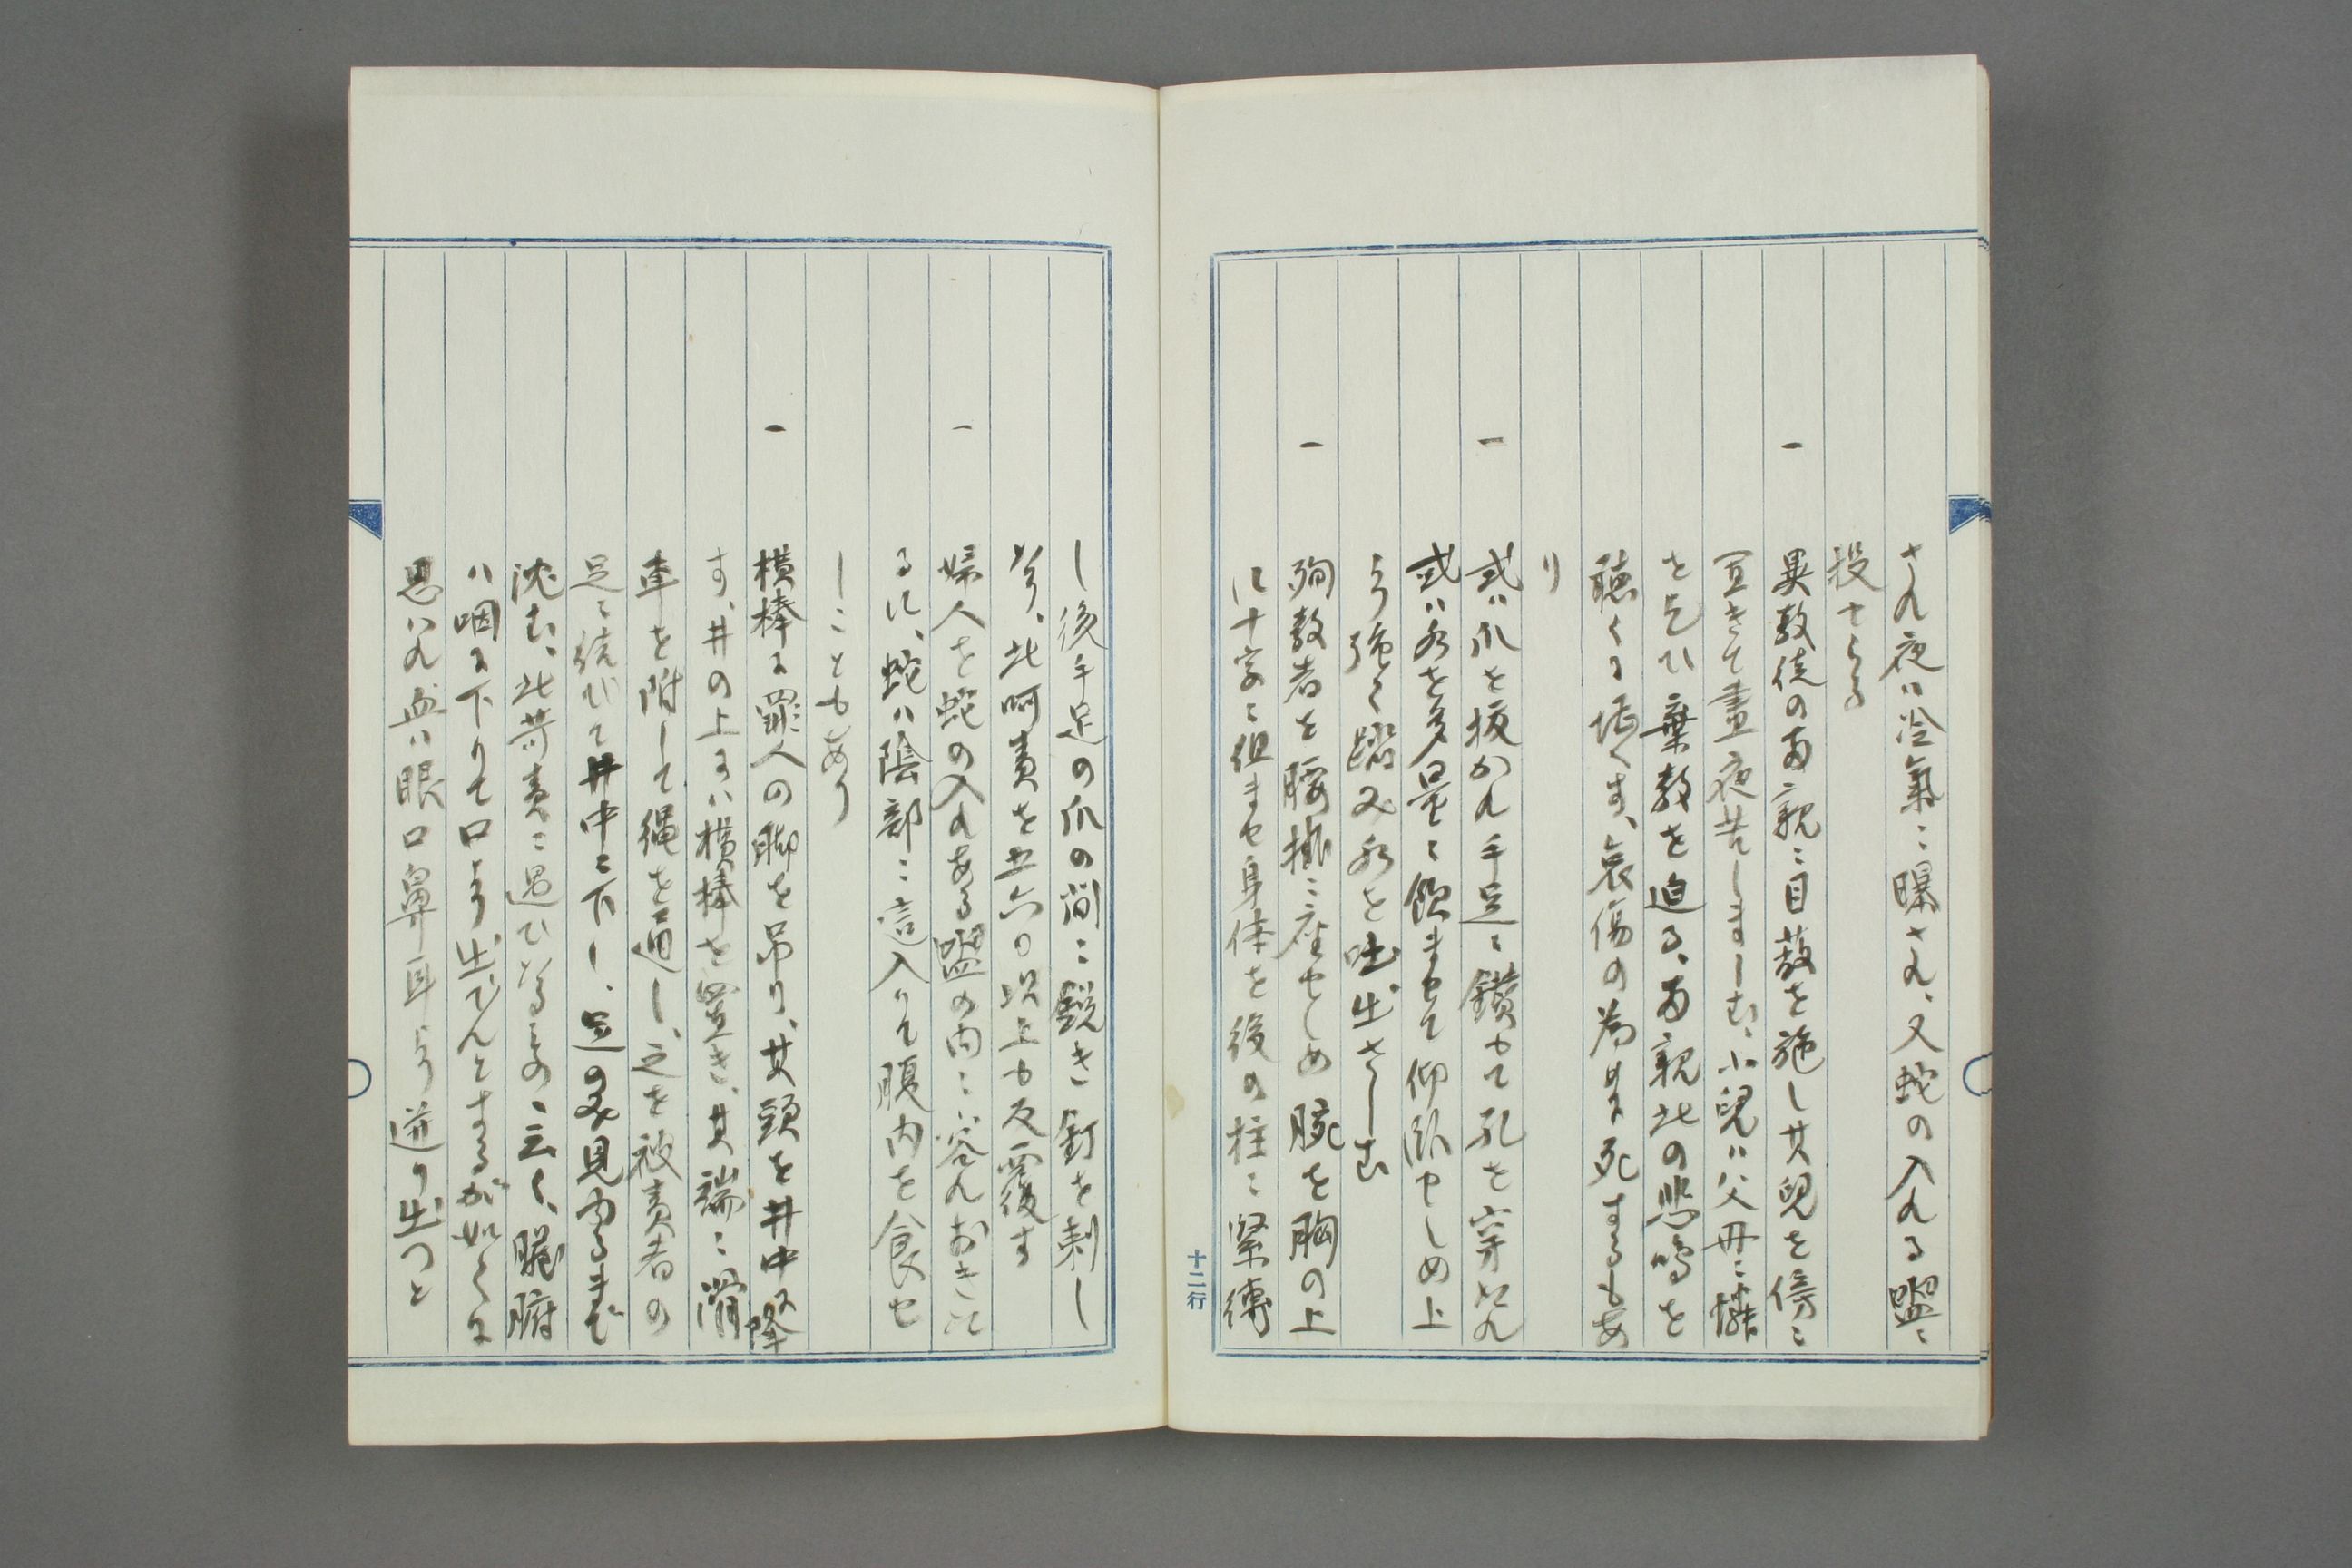 され夜ハ冷氣ニ曝され、又蛇の入れる盥ニ
投せらる
一 異教徒の両親ニ目蔽を施し其兒を傍ニ
置きて晝夜苦しましむ、小兒ハ父母ニ憐
を乞ひ棄教を迫る、両親此の悲鳴を
聴くに堪へず、哀傷の為めに死するもあ
り
一 或ハ爪を抜かれ手足ニ鑚もて孔を穿たれ
或ハ水を多量ニ飲ませて仰臥せしめ上
より強く踏み水を吐出さしむ
一 殉教者を腰掛ニ座せしめ腕を胸の上
に十字ニ組ませ身体を後の柱ニ緊縛
し後手足の爪の間ニ鋭き釘を刺し
なり、此呵責を五六日以上も反覆す
一 婦人を蛇の入れある盥の内ニ容れおきに
るに、蛇ハ陰部ニ這入りて腹内を食せ
しこともあり
一 横棒に罪人の脚を吊り、其頭を井中に降
す、井の上にハ横棒を置き、其端ニ滑
車を附して縄を通し、之を被責者の
足ニ結びて井中ニ下し、足の み見ゆるまで
沈む、此苛責ニ遇ひたるもの、云く、臓腑
ハ咽に下りて口より出でんとするが如くに
思ハれ血ハ眼口鼻耳より迸り出づと
十二行